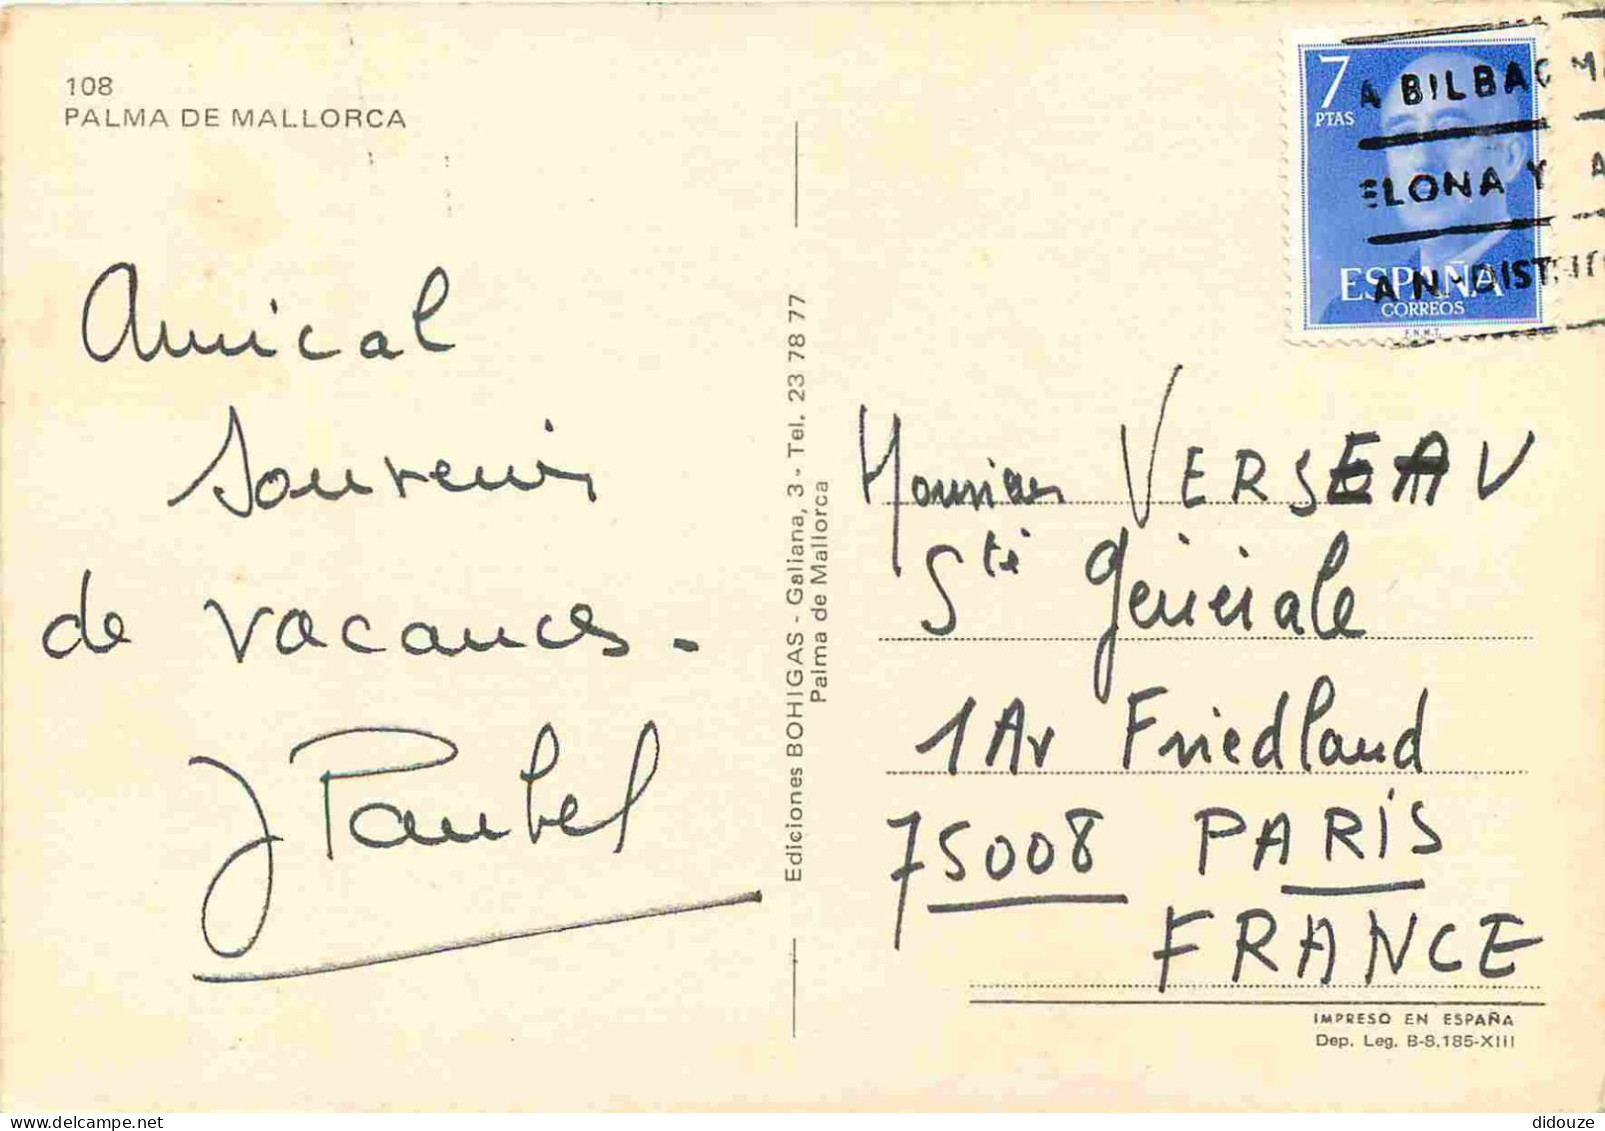 108
PALMA DE MALLORCA
Amical
Souvenir
de vacances.
Ediciones BOHIGAS - Galiana, 3 - Tel. 23 78 77
Palma de Mallorca
7
PTAS
ESPAÑA
CORREOS
F.N.M.T.
A BILBAO
ELONA Y A
AN-DIST
Monsieur VERSEAU
Sté Générale
1 Av Friedland
75008 PARIS
FRANCE
IMPRESO EN ESPAÑA
Dep. Leg. B-8.185-XIII
didouze